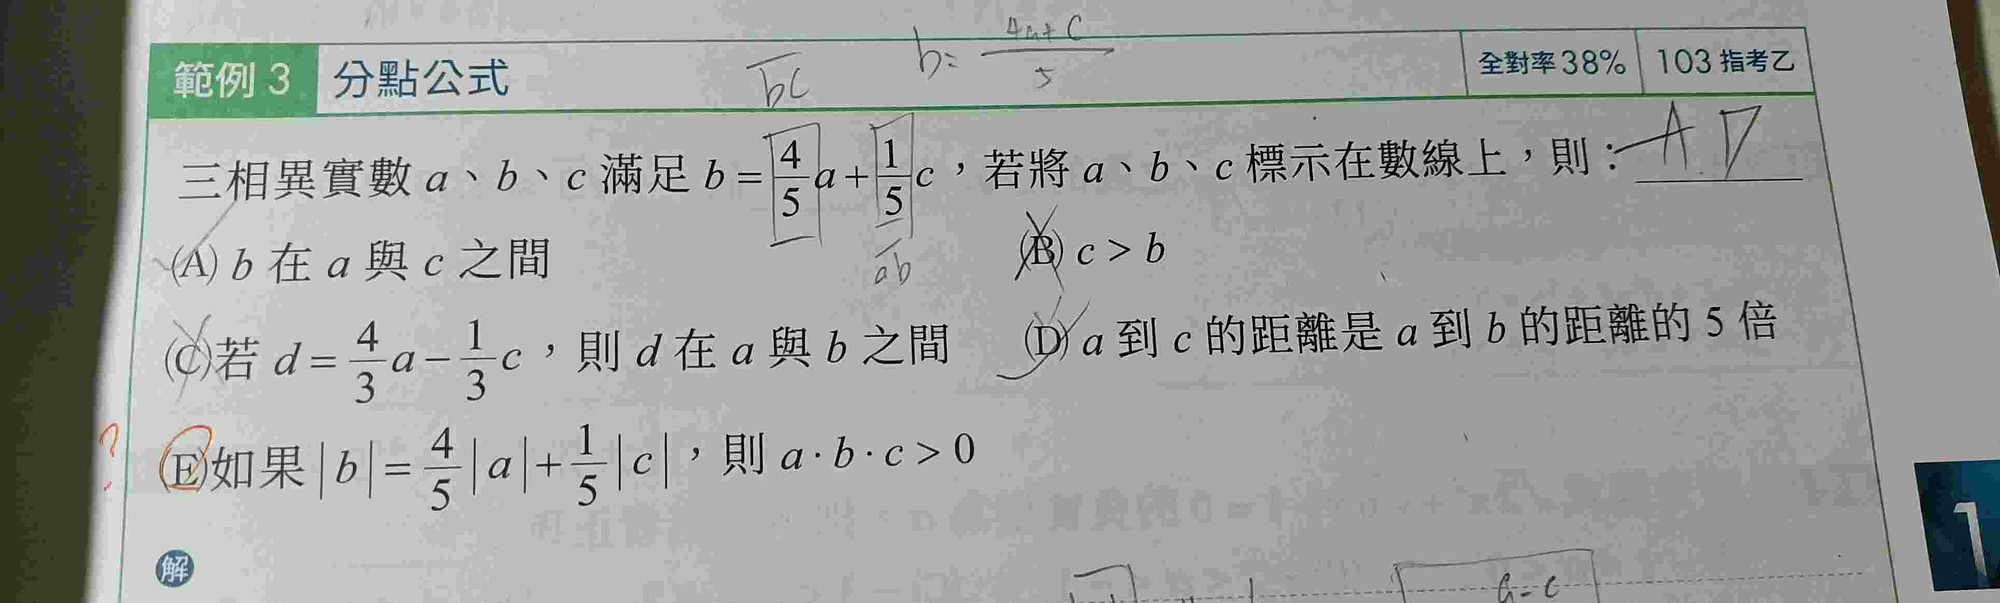 b = \frac{4a+c}{5}
範例 3 分點公式 \overline{bc} 全對率38% 103 指考乙
三相異實數 a、b、c 滿足 b = \frac{4}{5}a + \frac{1}{5}c，若將 a、b、c 標示在數線上，則：A D
\overline{ab}
(A) b 在 a 與 c 之間 (B) c > b
(C)若 d = \frac{4}{3}a - \frac{1}{3}c，則 d 在 a 與 b 之間 (D) a 到 c 的距離是 a 到 b 的距離的 5 倍
? (E)如果 |b| = \frac{4}{5}|a| + \frac{1}{5}|c|，則 a · b · c > 0
解
1